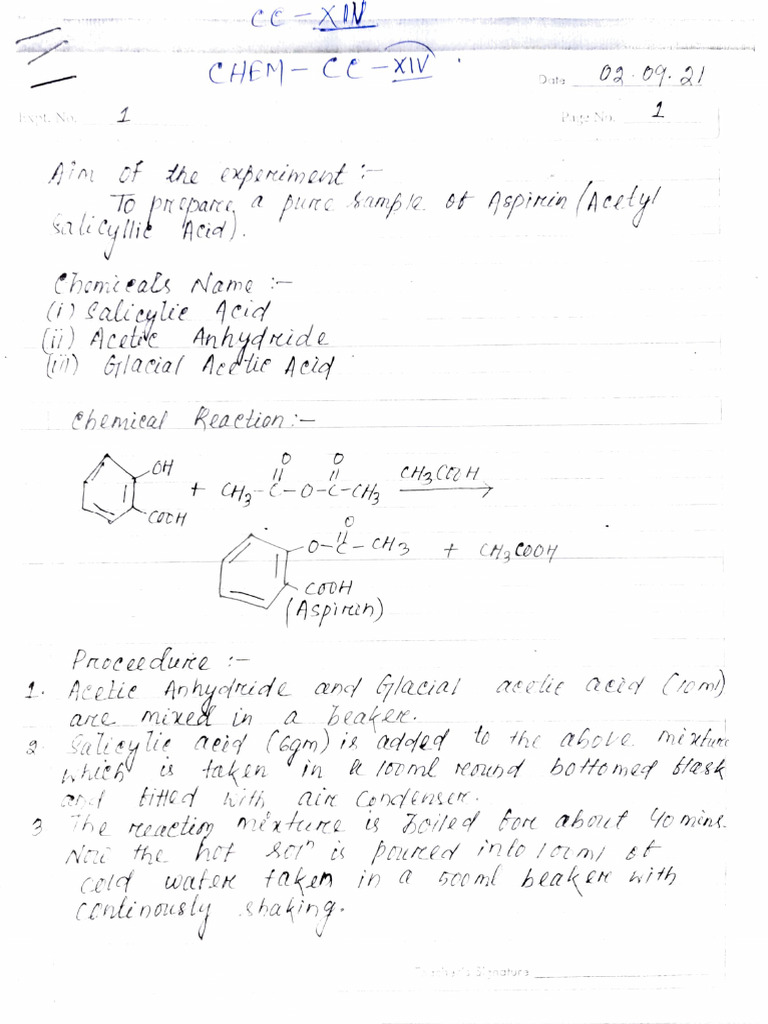 CC - XIV
CHEM - CC - XIV .
Date 02.09.21
Expt. No. 1
Page No. 1
Aim of the experiment :-
To prepare a pure sample of Aspirin (Acetyl
Salicyllic Acid).
Chemicals Name :-
(i) Salicylic Acid
(ii) Acetic Anhydride
(iii) Glacial Acetic Acid
Chemical Reaction :-
OH
COOH
+ CH3-C-O-C-CH3
O O
CH3COOH
O-C-CH3
O
COOH
+ CH3COOH
(Aspirin)
Proceedure :-
1. Acetic Anhydride and Glacial acetic acid (10ml)
are mixed in a beaker.
2. Salicylic acid (6gm) is added to the above mixture
which is taken in a 100ml round bottomed flask
and fitted with air condenser.
3 The reaction mixture is Boiled for about 40 mins.
Now the hot solⁿ is poured into 100ml of
cold water taken in a 500ml beaker with
continously shaking.
Teacher's Signature